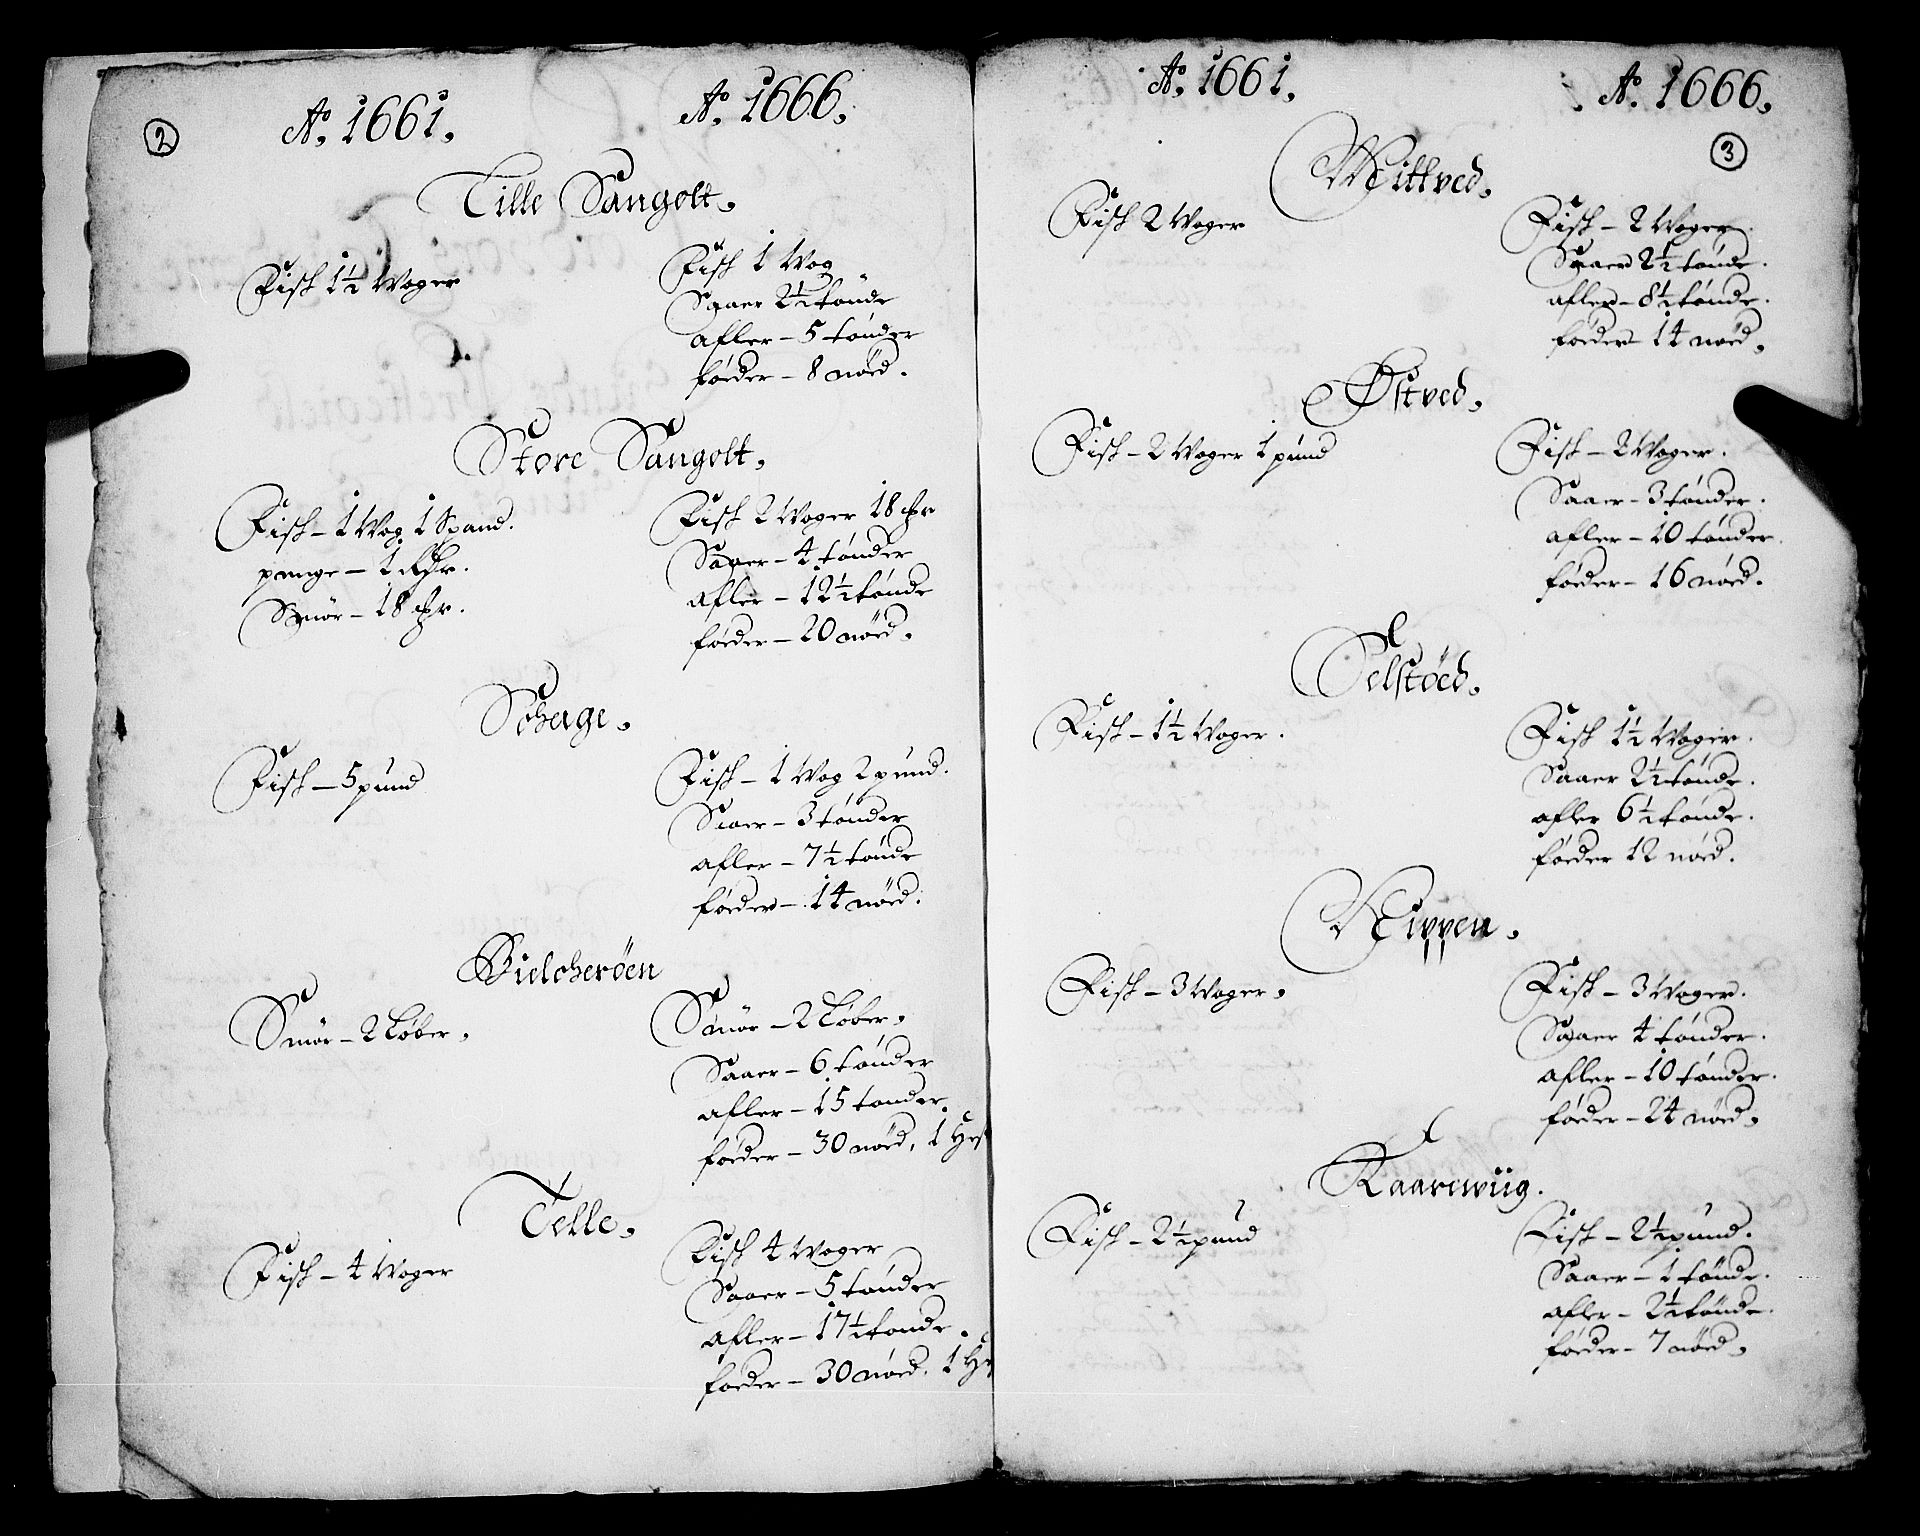 2
Ao. 1661.
Ao. 1666.
Tille Sangolt.
Fisk 1½ Woger
Fisk 1 Wog
Saaer 2½ tønde
afler – 5 tønder
føeder – 8 nöed.
Store Sangolt.
Fisk – 1 Wog 1 Spand.
penge – 1 Rdr.
Smör – 18 mkr.
Fisk 2 Woger 18 mkr
Saaer – 4 tønder
afler – 12½ tønde
føeder – 20 nöed.
Fisk – 5 pund
Fisk – 1 Wog 2 pund.
Saaer – 3 tønder
afler – 7½ tønde
føeder – 14 nöed.
Gielcheröen
Smör – 2 Løber.
Smör – 2 Løber.
Saaer – 6 tønder
afler – 15 tønder.
føeder – 30 nöed, 1 Hest
Telle.
Fisk – 4 Woger
Fisk 4 Woger
Saaer – 5 tønder
afler – 17½ tønde.
føeder – 30 nöed. 1 He
Ao. 1661.
Ao. 1666.
3
Mittved.
Fisk 2 Woger
Fisk – 2 Woger.
Saaer 2½ tønde.
afler – 8½ tønde.
føeder 14 nöed.
Østved.
Fisk – 2 Woger 1 pund
Fisk – 2 Woger.
Saaer – 3 tønder.
afler – 10 tønder.
føeder – 16 nöed.
Selstöed.
Fisk – 1½ Woger.
Fisk 1½ Woger.
Saaer 2½ tønde.
afler 6½ tønde.
føeder 12 nöed.
Nippen.
Fisk – 3 Woger.
Fisk – 3 Woger.
Saaer 4 tønder.
afler – 10 tønder.
føeder – 24 nöed.
Kaarewiig.
Fisk – 2½ pund
Fisk – 2½ pund.
Saaer – 1 tønde.
afler – 2½ tønde.
føeder – 7 nöed.